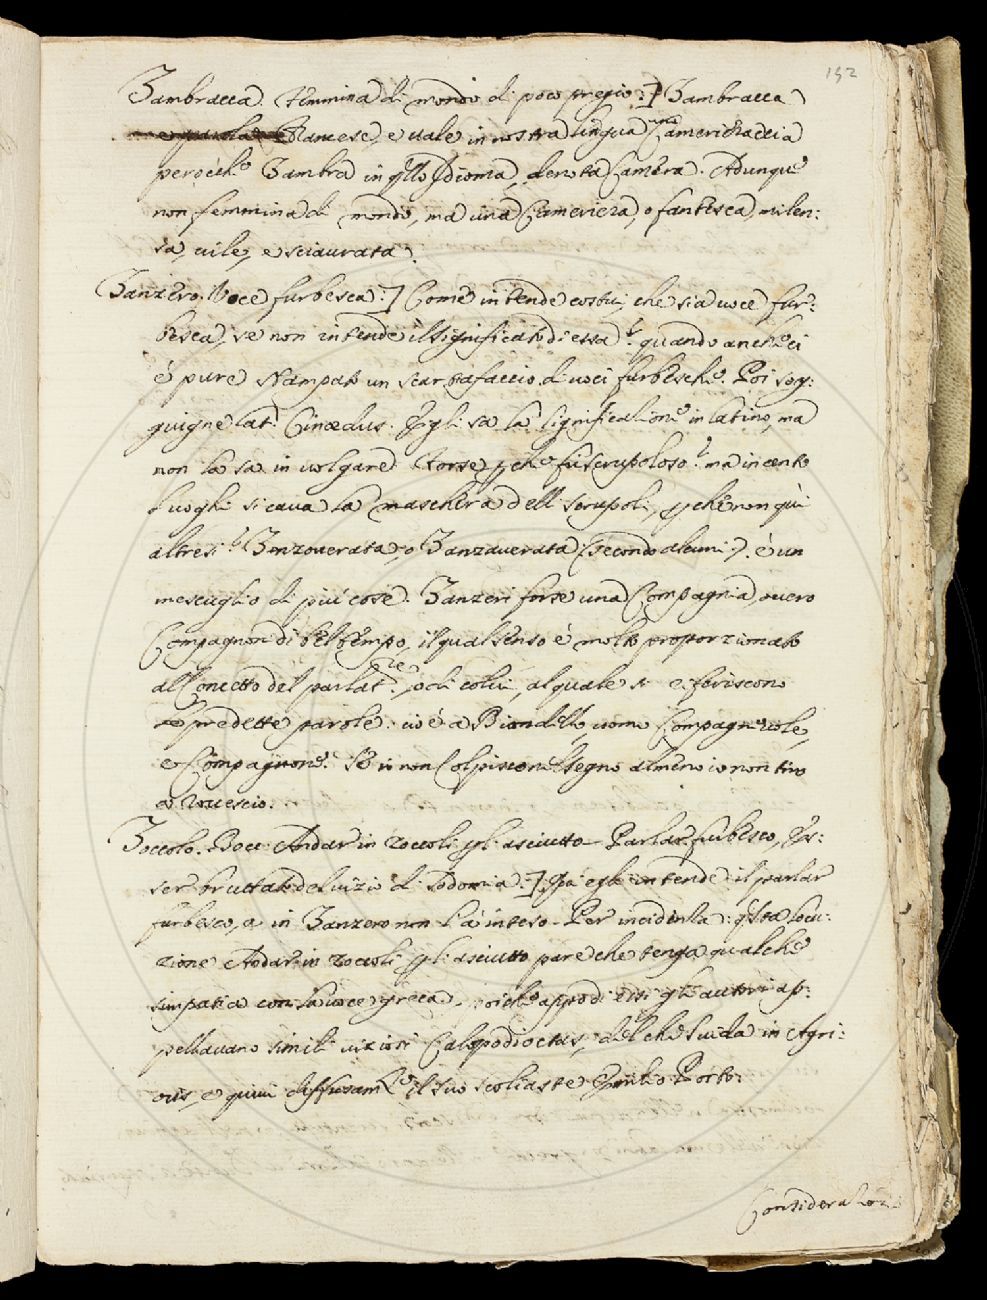 152
Zambracca. Femmina di mondo di poco pregio.] Zambracca
è Francese, e vale in nostra lingua una Camerieraccia
perocché Zambra in qllo Idioma, denota Camera. Adunque
non femmina di mondo, ma una Cameriera, o fantesca, milen:
sa, vile, e sciaurata.
Zanzero. Voce furbesca.] Come intende costui, che sia voce fur:
besca, se non intende il significato di essa? quando anche ci
è pure stampato un scartafaccio di voci furbesche. Poi sog:
giugne Lat. Cinædus. Egli sa la significatione in latino, ma
non la sa in volgare? Forse pche fu scrupoloso? ma in cento
luoghi si cava la maschera delli scrupoli, pche non quì
altresì? Zinzoverata, o Zanzaverata (secondo alcuni). è un
mescuglio di più cose. Zanzeri forse una Compagnia, overo
Compagnon di bel tempo, il qual senso è molto proporzionato
all Concetto del parlat.re, o di colui, al quale si riferiscono
le predette parole: cioè a Biondello, uomo Compagnevole,
e Compagnone. Se io non Colpisco nel segno almeno io non tiro
a rovescio.
Zoccolo. Voce Andar in zoccoli p l'asciutto. Parlar furbesco, Es:
ser bruttato del vizio di sodomia.] Quì egli intende il parlar
furbesco, e in Zanzero non l'à inteso. Per incidenza: qsta locu:
zione Andar in zoccoli p l'asciutto pare che tenga qualche
simpatia con la voce greca, poiche appo di essi gli autori ap:
pellavano simili viziosi Calopodioctus, del che Suida in Agri:
ous, e quivi diffusam.te il suo scoliaste Emilio Porto.
Considerazione